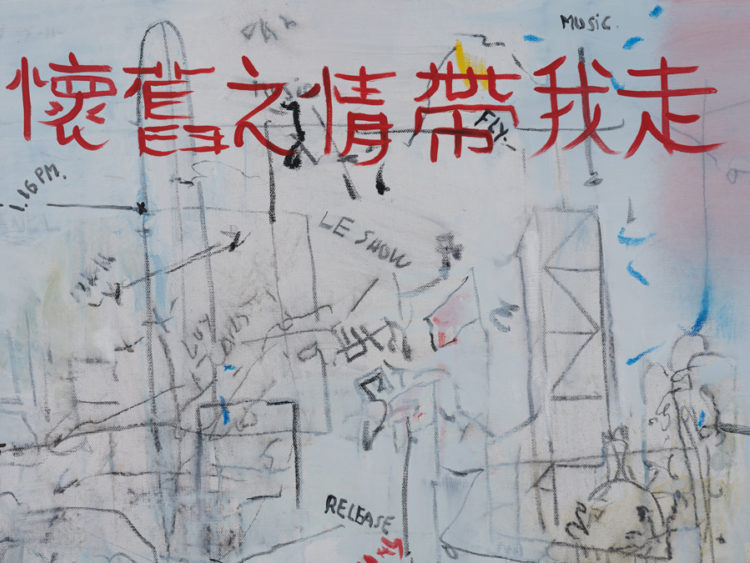 MUSIC.
懷舊之情帶我走
FLY.
1.16 PM.
LE SHOW
RELEASE